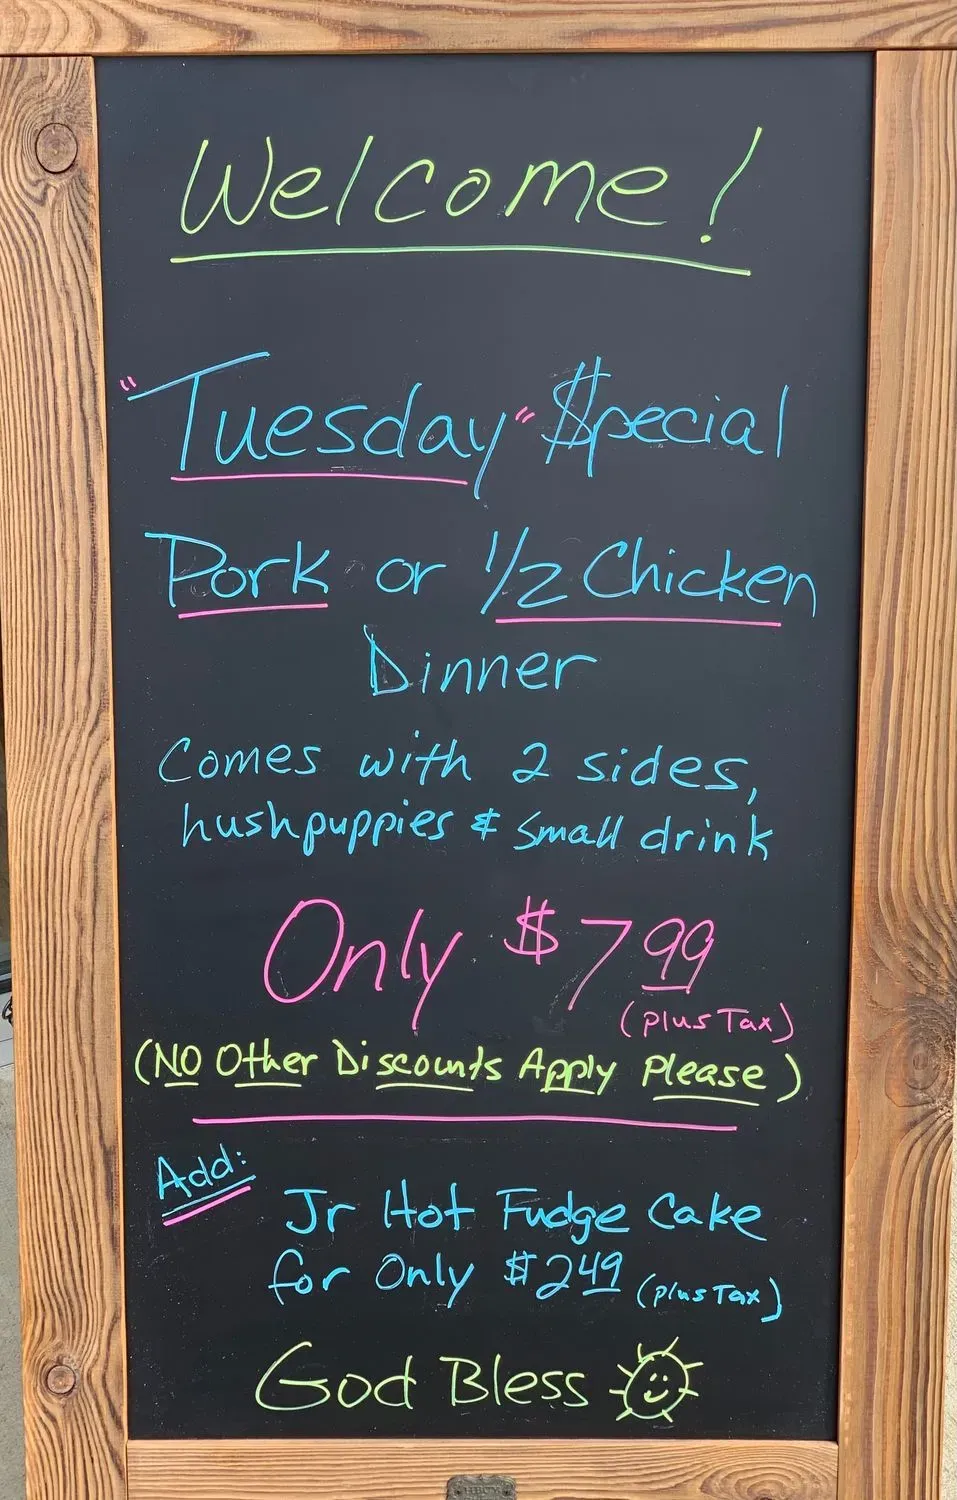 Welcome!
"Tuesday" $pecial
Pork or 1/2 Chicken
Dinner
Comes with 2 sides,
hushpuppies & small drink
Only $7 99
(plus Tax)
(NO Other Discounts Apply Please)
Add:
Jr Hot Fudge Cake
for Only $2 49 (plus Tax)
God Bless